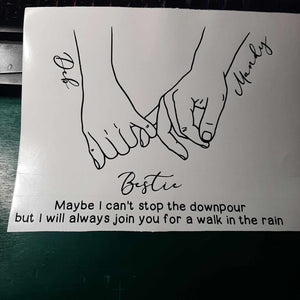 Deb
Mandy
Bestie
Maybe I can't stop the downpour
but I will always join you for a walk in the rain